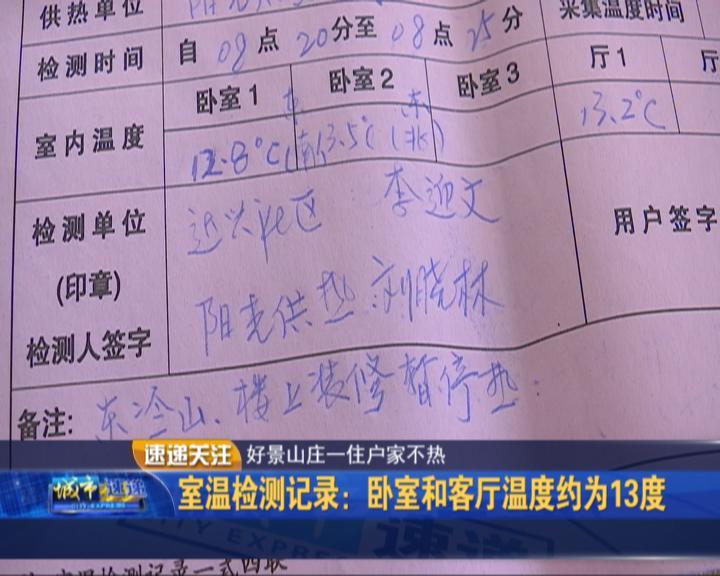 供热单位 阳光 采集温度时间
检测时间 自 08 点 20 分至 08 点 25 分
卧室1 卧室2 卧室3 厅1 厅
室内温度 12.8℃(南) 东 13.5℃(北) 东 13.2℃
检测单位 迎兴社区 李迎文 用户签字
(印章)
检测人签字 阳光供热 刘晓林
备注: 东冷山、楼上装修暂停热.
速递关注 好景山庄一住户家不热
城市速递 室温检测记录：卧室和客厅温度约为13度
CITY EXPRESS
室温检测记录一式四联